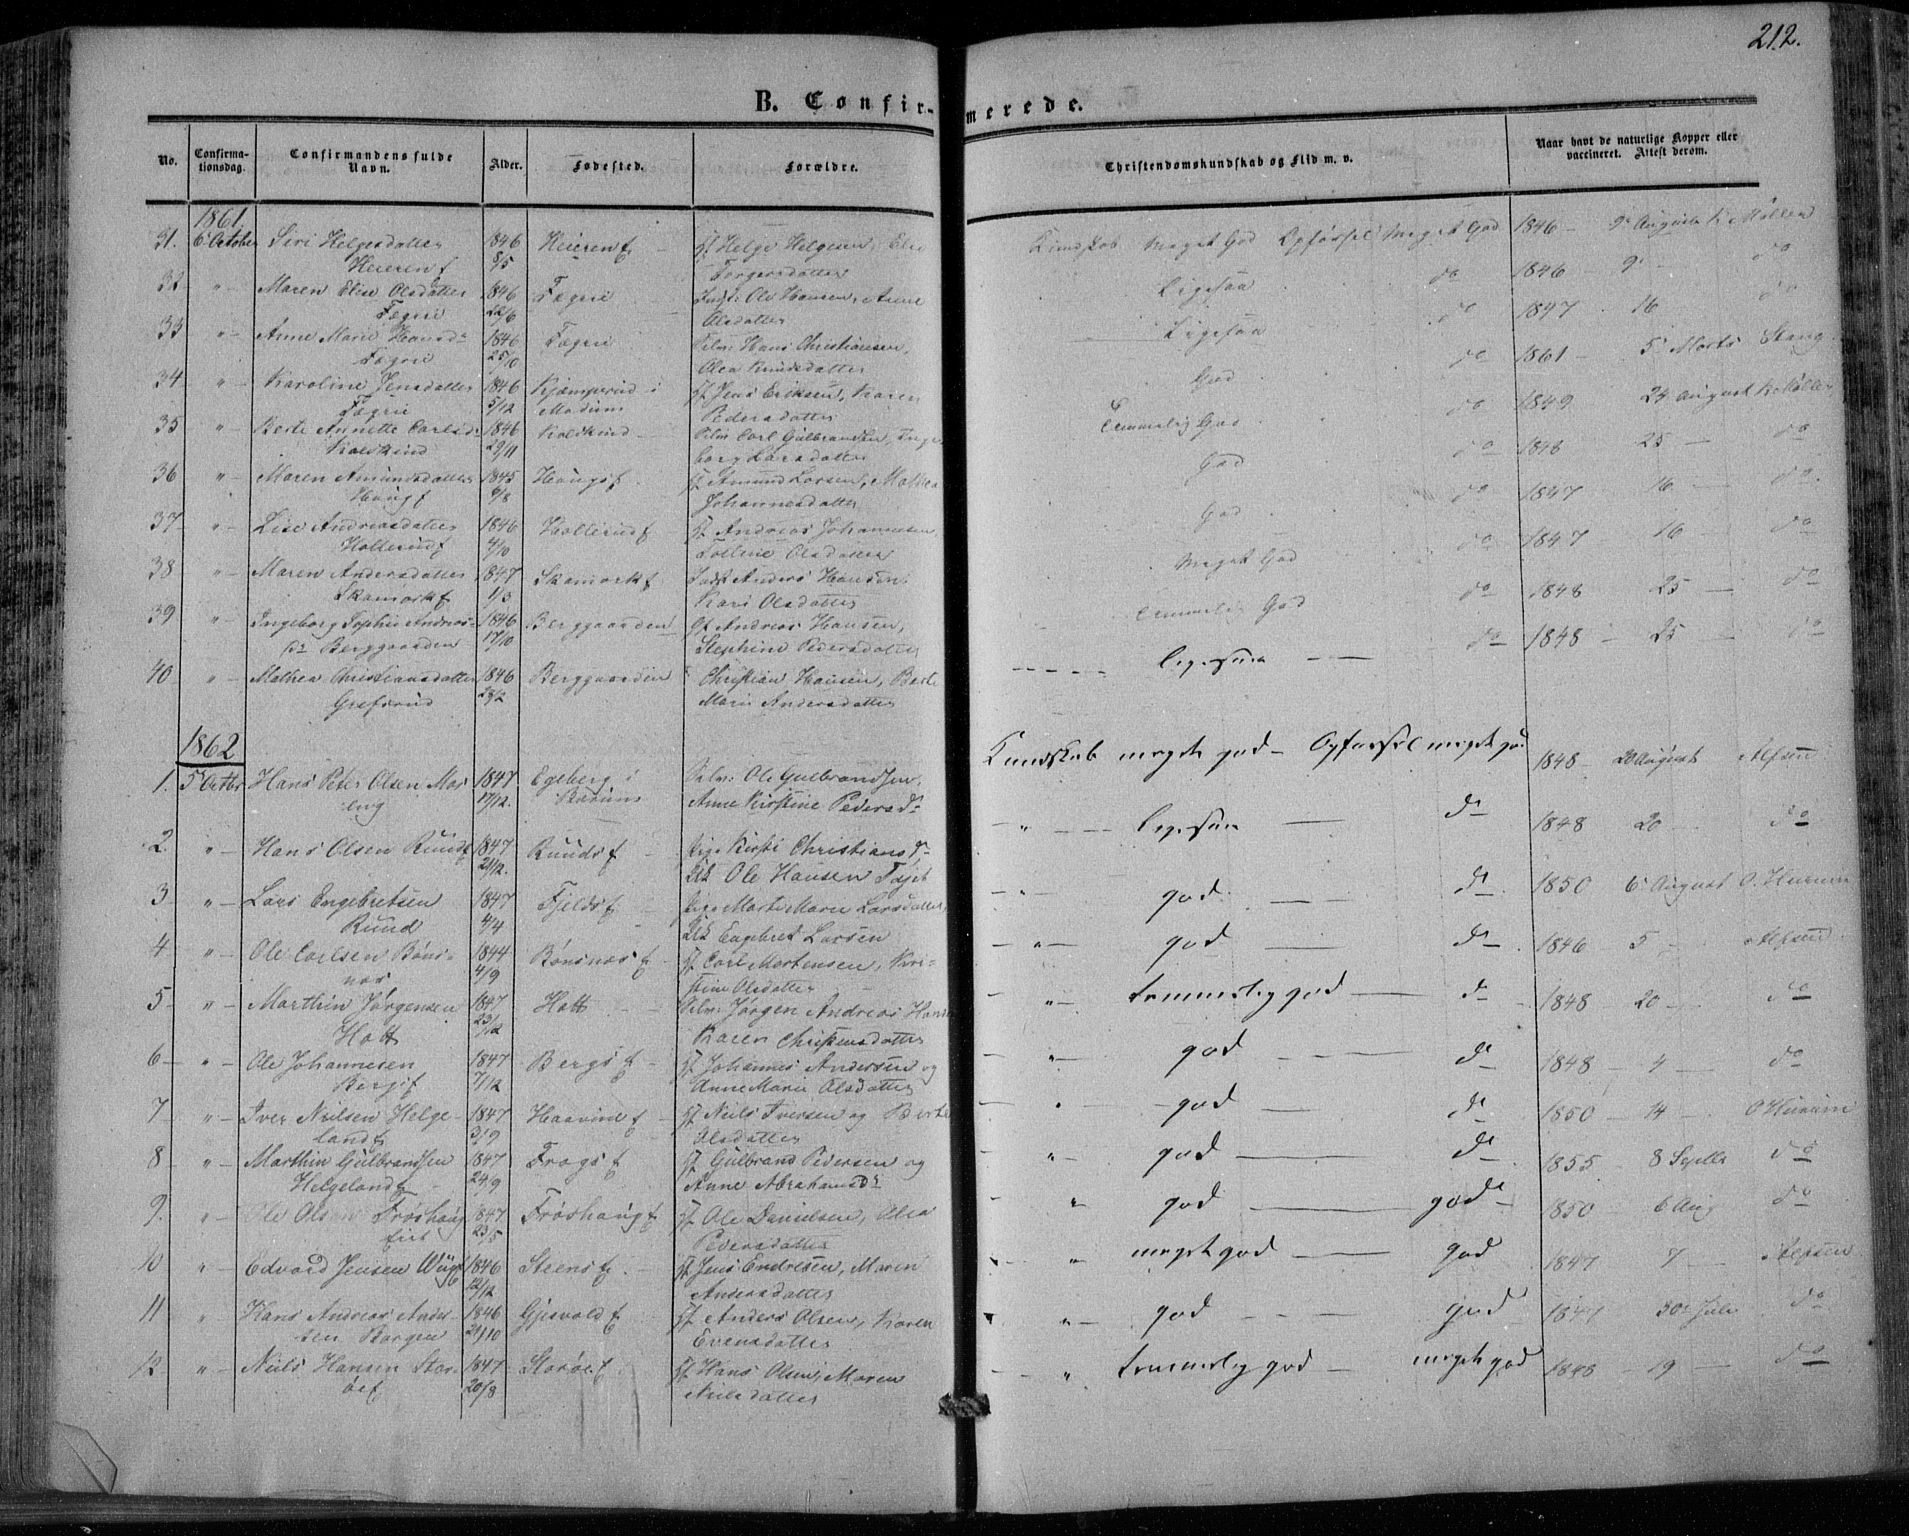 212.
B. Confirmerede.
No. Confirmationsdag. Confirmandens fulde Navn. Alder. Fødested. Forældre. Christendomskundskab og Flid m. v. Naar havt de naturlige Kopper eller vaccineret. Attest derom.
1861
31. 6 October Siri Helgesdatter 1846 Heieren f Helge Helgesen, Else Kundskab Meget God Opførsel Meget God 1846 9 August Møller
Heieren f 8/5 Torgersdatter
32 " Maren Elise Olsdatter 1846 Fægrie Ole Hansen, Anne Ligesaa do 1846 9 do
Fægrie 22/6 Olsdatter
33 " Anne Marie Hansd 1846 Fægri Selv: Hans Christiansen, Ligesaa do 1847 16 do
Fægri 25/10 Olea Knudsdatter
34 " Karoline Jensdatter 1846 Kjæmperud i Jens Eriksen, Karen God do 1861 5 Marts Stang
Fægrie 5/12 Modum Pedersdatter
35 " Berte Annette Carlsd 1846 Koldkind Selv Carl Gulbrandsen, Inge Temmelig God do 1849 24 August Møller
Koldkind 29/11 borg Larsdatter
36 " Maren Amundsdatter 1845 Houg f Amund Larsen, Mathea God do 1848 25 do
Houg f 6/8 Johannesdatter
37 " Lise Andreasdatter 1846 Hollerud f Andreas Johannesen God do 1847 16 do
Hollerud f 4/10 Olsdatter
38 " Maren Andersdatter 1847 Skamark f Inds Anders Hansen Meget God do 1847 16 do
Skamark f 1/3 Kari Olsdatter
39 " Ingeborg Sophie Andreas- 1846 Berggaarden Andreas Hansen, Temmelig God do 1848 25 do
dr Berggaarden 17/10 Stephine Pedersdatter
40 " Mathea Christiansdatter 1846 Berggaarden Christian Hansen, Berte ligesaa do 1848 25 do
Grefsrud 28/2 Marie Andersdatter
1862
1. 5 Octbr Hans Peter Olsen Mos 1847 Egeberg i Selv: Ole Gulbrandsen, Kundskab meget god Opførsel meget god 1848 20 August Alfsen
eng 17/12. Bærums Anne Kirstine Pedersd
2. " Hans Olsen Ruud f 1847 Ruuds f Pige Kirsti Christiansd ligesaa do 1848 20 do
21/12. Ole Hansen
3 " Lars Engebretsen 1847 Fjelds f Pige Marte Marie Larsdatter god do 1850 6 August O. Hurum
Ruud 4/4 Engebret Larsen
4 " Ole Carlsen Bøns- 1844 Bønsnæs f Carl Mortensen, Kri- god do 1846 5 Alfsen
næs 4/9 stine Olsdatter
5 " Marthin Jørgensen 1847 Hott Selv: Jørgen Andreas temmelig god do 1848 20 do
Hott 23/12 Karen Christensdatter
6 " Ole Johannesen 1847 Bergs f Johannes Andersen og god do 1848 4 do
Bergs f 7/12 Anne Marie Olsdatter
7 " Iver Nielsen Helge- 1847 Haavine f Niels Iversen og Berte god do 1850 14 O Hurum
land f 3/9 Olsdatter
8 " Marthin Gulbrandsen 1847 Frogs f Gulbrand Pedersen og god do 1855 8 Septbr do
Helgeland f 24/9 Anne Abrahamsdr
9. " Ole Olsen Frøshaug 1847 Frøshaug f Ole Danielsen, Olea god god 1850 6 Aug do
eie 23/5 Pedersdatter
10 " Edvard Jensen 1846 Steens f Jens Endresen, Maren meget god god 1847 7 Alfsen
12/12 Andersdatter
11 " Hans Andreas Ander- 1846 Gjesvold f Anders Olsen, Karen god god 1847 30 Juli do
sen Borgen 21/10 Evensdatter
12 " Niels Hansen Stor- 1847 Storøe f Hans Olsen, Maren temmelig god meget god 1848 19 do
øe f 20/8 Nielsdatter